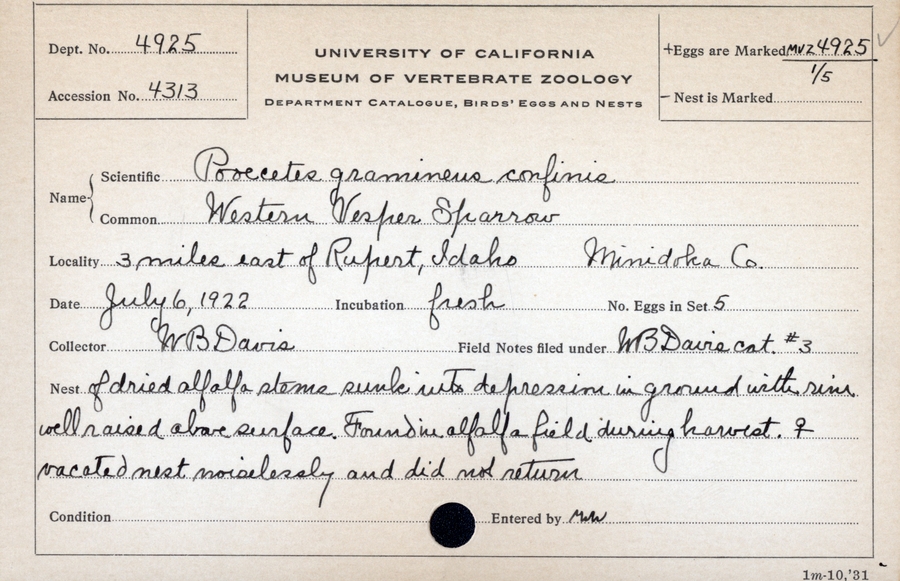 Dept. No. 4925
Accession No. 4313
UNIVERSITY OF CALIFORNIA
MUSEUM OF VERTEBRATE ZOOLOGY
DEPARTMENT CATALOGUE, BIRDS' EGGS AND NESTS
+Eggs are Marked MVZ 4925
1/5
– Nest is Marked
Name
Scientific Pooecetes gramineus confinis
Common Western Vesper Sparrow
Locality 3 miles east of Rupert, Idaho Minidoka Co.
Date July 6, 1922 Incubation fresh No. Eggs in Set 5
Collector WB Davis Field Notes filed under WB Davis cat. #3
Nest of dried alfalfa stems sunk into depression in ground with rim
well raised above surface. Found in alfalfa field during harvest. ♀
vacated nest noiselessly and did not return
Condition Entered by
1m-10,'31